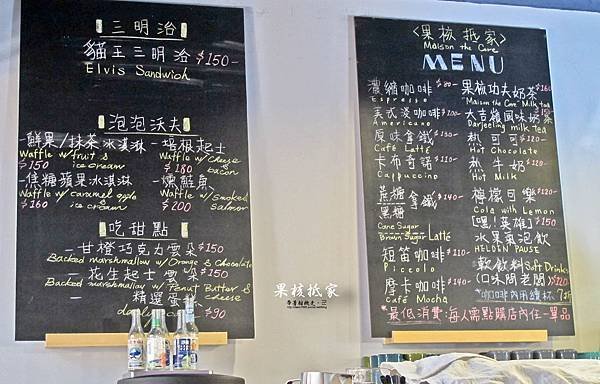 三明治
貓王三明治 $150-
Elvis Sandwich
泡泡沃夫
-鮮果/抹茶冰淇淋
Waffle w/ fruit &
$150 ice cream
-培根起士
Waffle w/ cheese &
$180 bacon
-焦糖蘋果冰淇淋
Waffle w/ caramel apple
$160 ice cream
-燻鮭魚
Waffle w/ smoked
$200 salmon
吃甜點
-甘橙巧克力雲朵 $150
Backed marshmallow w/ Orange & Chocolate
-花生起士雲朵 $150
Backed marshmallow w/ Peanut Butter & cheese
- 精選蛋糕
$90
<果核抵家>
Maison the Core
MENU
濃縮咖啡 $80-
Espresso
美式淡咖啡 $100-
Americano
原味拿鐵 $130-
Café Latté
卡布奇諾 $110-
Cappuccino
蔗糖
黑糖 拿鐵 $140-
Cane Sugar
Brown Sugar Latté
短笛咖啡 $110-
Piccolo
摩卡咖啡 $140-
Café Mocha
果核功夫奶茶 $160
"Maison the Core" Milk tea
大吉嶺風味奶茶
Darjeeling milk tea
熱可可 $120-
Hot Chocolate
熱牛奶 $120-
Hot Milk
檸檬可樂 $120
Cola with Lemon
[嘿!英雄] $150
水果氣泡飲
HELDEN PAUSE
軟飲料 Soft Drinks
(口味問老闆) $120
*咖啡內用續杯
*最低消費:每人需點購店內任一單品
果核抵家